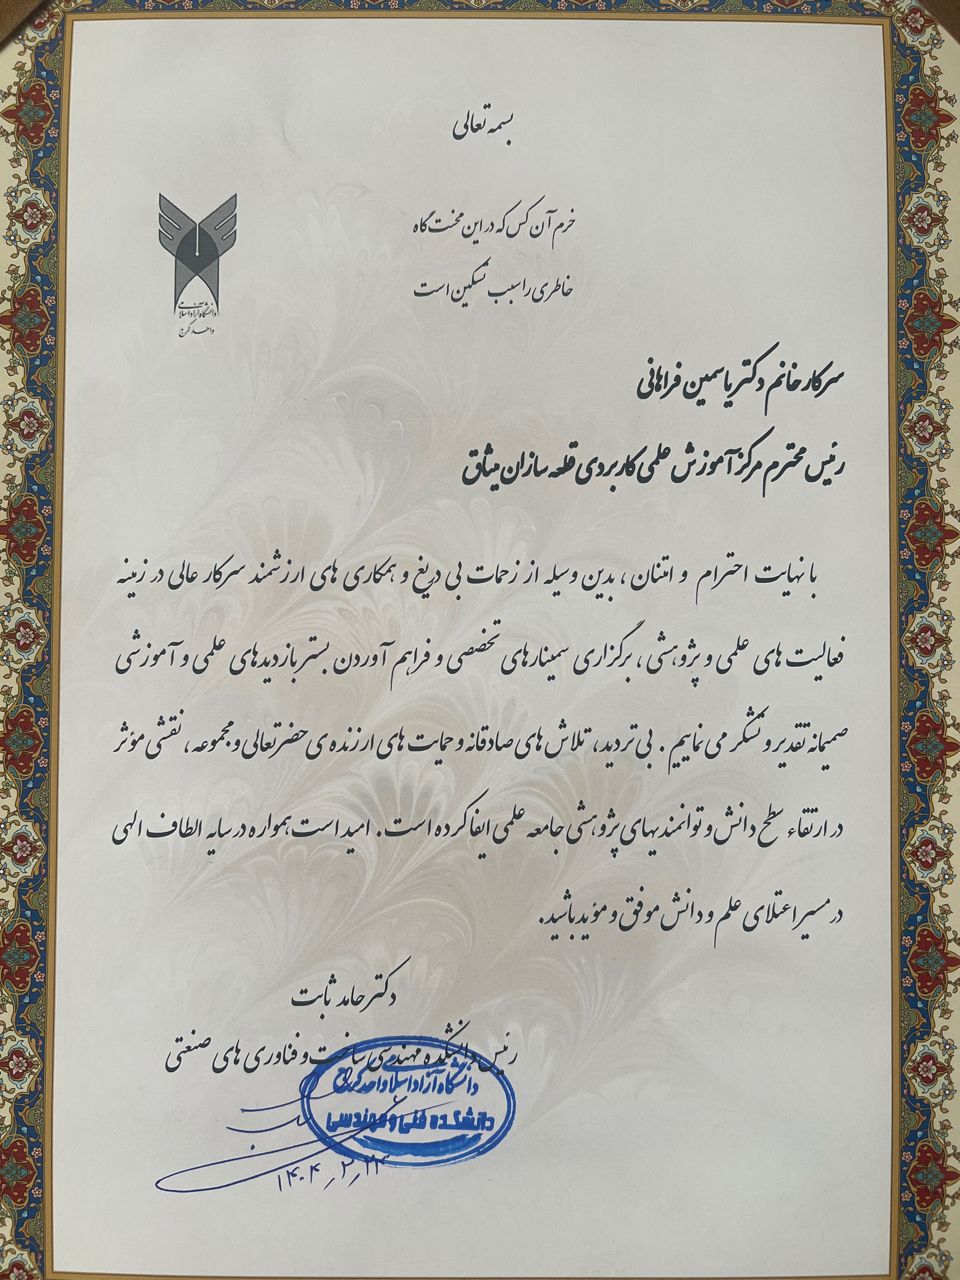 بسمه تعالی
خرم آن کس که در این محنت گاه
خاطری را سبب تسکین است
دانشگاه آزاد اسلامی
واحد کرج
سرکار خانم دکتر یاسمین فراهانی
رئیس محترم مرکز آموزش علمی کاربردی قطعه سازان میثاق
با نهایت احترام و امتنان، بدین وسیله از زحمات بی دریغ و همکاری های ارزشمند سرکار عالی در زمینه
فعالیت های علمی و پژوهشی، برگزاری سمینارهای تخصصی و فراهم آوردن بستر بازدیدهای علمی و آموزشی
صمیمانه تقدیر و تشکر می نماییم. بی تردید، تلاش های صادقانه و حمایت های ارزنده ی حضرتعالی و مجموعه، نقشی مؤثر
در ارتقاء سطح دانش و توانمندیهای پژوهشی جامعه علمی ایفا کرده است. امید است همواره در سایه الطاف الهی
در مسیر اعتلای علم و دانش موفق و مؤید باشید.
دکتر حامد ثابت
رئیس دانشکده مهندسی ساخت و فناوری های صنعتی
دانشگاه آزاد اسلامی واحد کرج
دانشکده فنی و مهندسی
۱۴۰۴٫۲٫۲۴